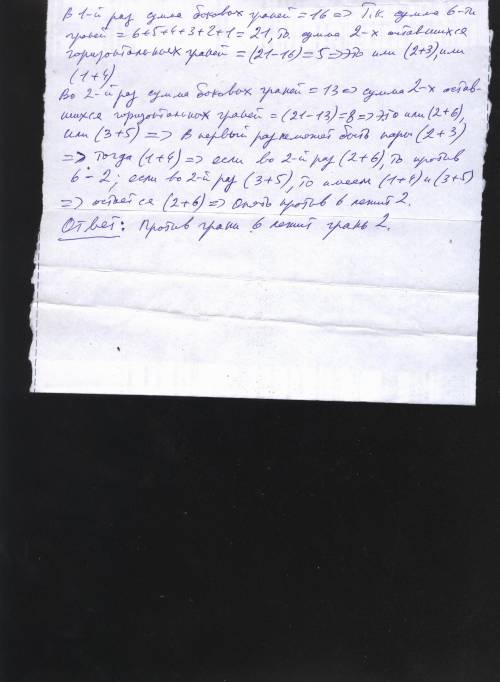 В 1-й раз сумма боковых граней = 16 => Т.к. сумма 6-ти
граней = 6+5+4+3+2+1 = 21, то сумма 2-х оставшихся
горизонтальных граней = (21-16) = 5 => это или (2+3) или
(1+4)
Во 2-й раз сумма боковых граней = 13 => сумма 2-х остав-
шихся горизонтальных граней = (21-13) = 8 => это или (2+6),
или (3+5) => В первый раз не может быть пары (2+3)
=> тогда (1+4) => если во 2-й раз (2+6), то против
6 - 2; если во 2-й раз (3+5), то имеем (1+4) и (3+5)
=> остаётся (2+6) => Опять против 6 лежит 2.
Ответ: Против грани 6 лежит грань 2.